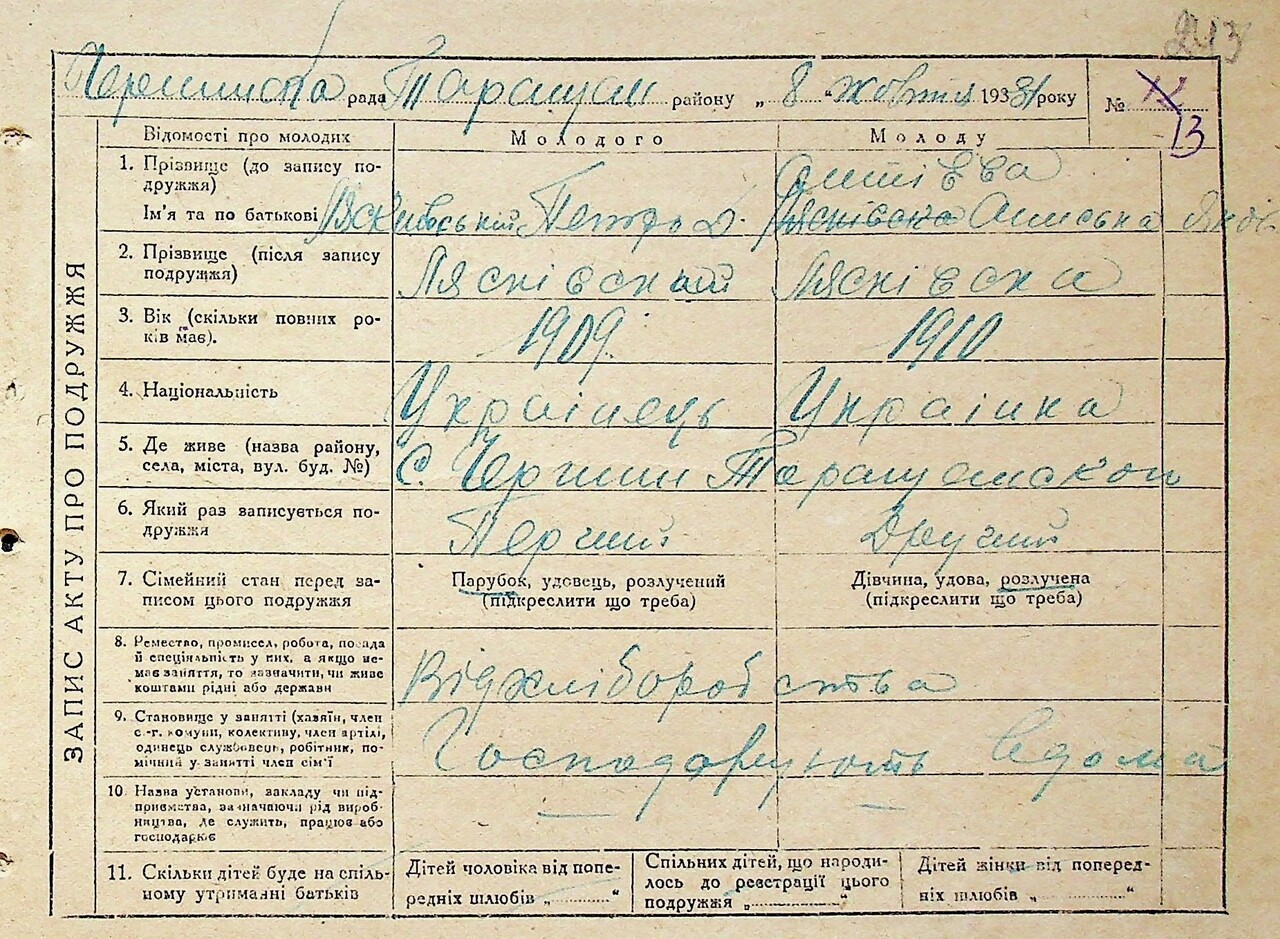 243
рада Таращан району „ 8 “ жовтня 1931 року № 12
13
ЗАПИС АКТУ ПРО ПОДРУЖЖЯ
Відомості про молодих Молодого Молоду
1. Прізвище (до запису по-
дружжя)
Ім'я та по батькові Петро Д.
2. Прізвище (після запису
подружжя) Лясківский Лясківска
3. Вік (скільки повних ро-
ків має). 1909. 1910
4. Національність Українець Українка
5. Де живе (назва району,
села, міста, вул. буд. №) С.
6. Який раз записується по-
дружжя Перчий Другий
7. Сімейний стан перед за-
писом цього подружжя
Парубок, удовець, розлучений
(підкреслити що треба)
Дівчина, удова, розлучена
(підкреслити що треба)
8. Ремество, промисел, робота, посада
й спеціяльність у них, а якщо не-
має заняття, то зазначити, чи живе
коштами рідні або держави
Від хліборобства
9. Становище у занятті (хазяїн, член
с.-г. комуни, колективу, член артілі,
одинець службовець, робітник, по-
мічний у занятті член сім'ї
Господарують вдома
10 Назва установи, закладу чи під-
приємства, зазначаючи рід вироб-
ництва, де служить, працює або
господарює
— —
11. Скільки дітей буде на спіль-
ному утриманні батьків
Дітей чоловіка від попе-
редніх шлюбів „..........“
Спільних дітей, що народи-
лось до реєстрації цього
подружжя „..........“
Дітей жінки від поперед-
ніх шлюбів „..........“